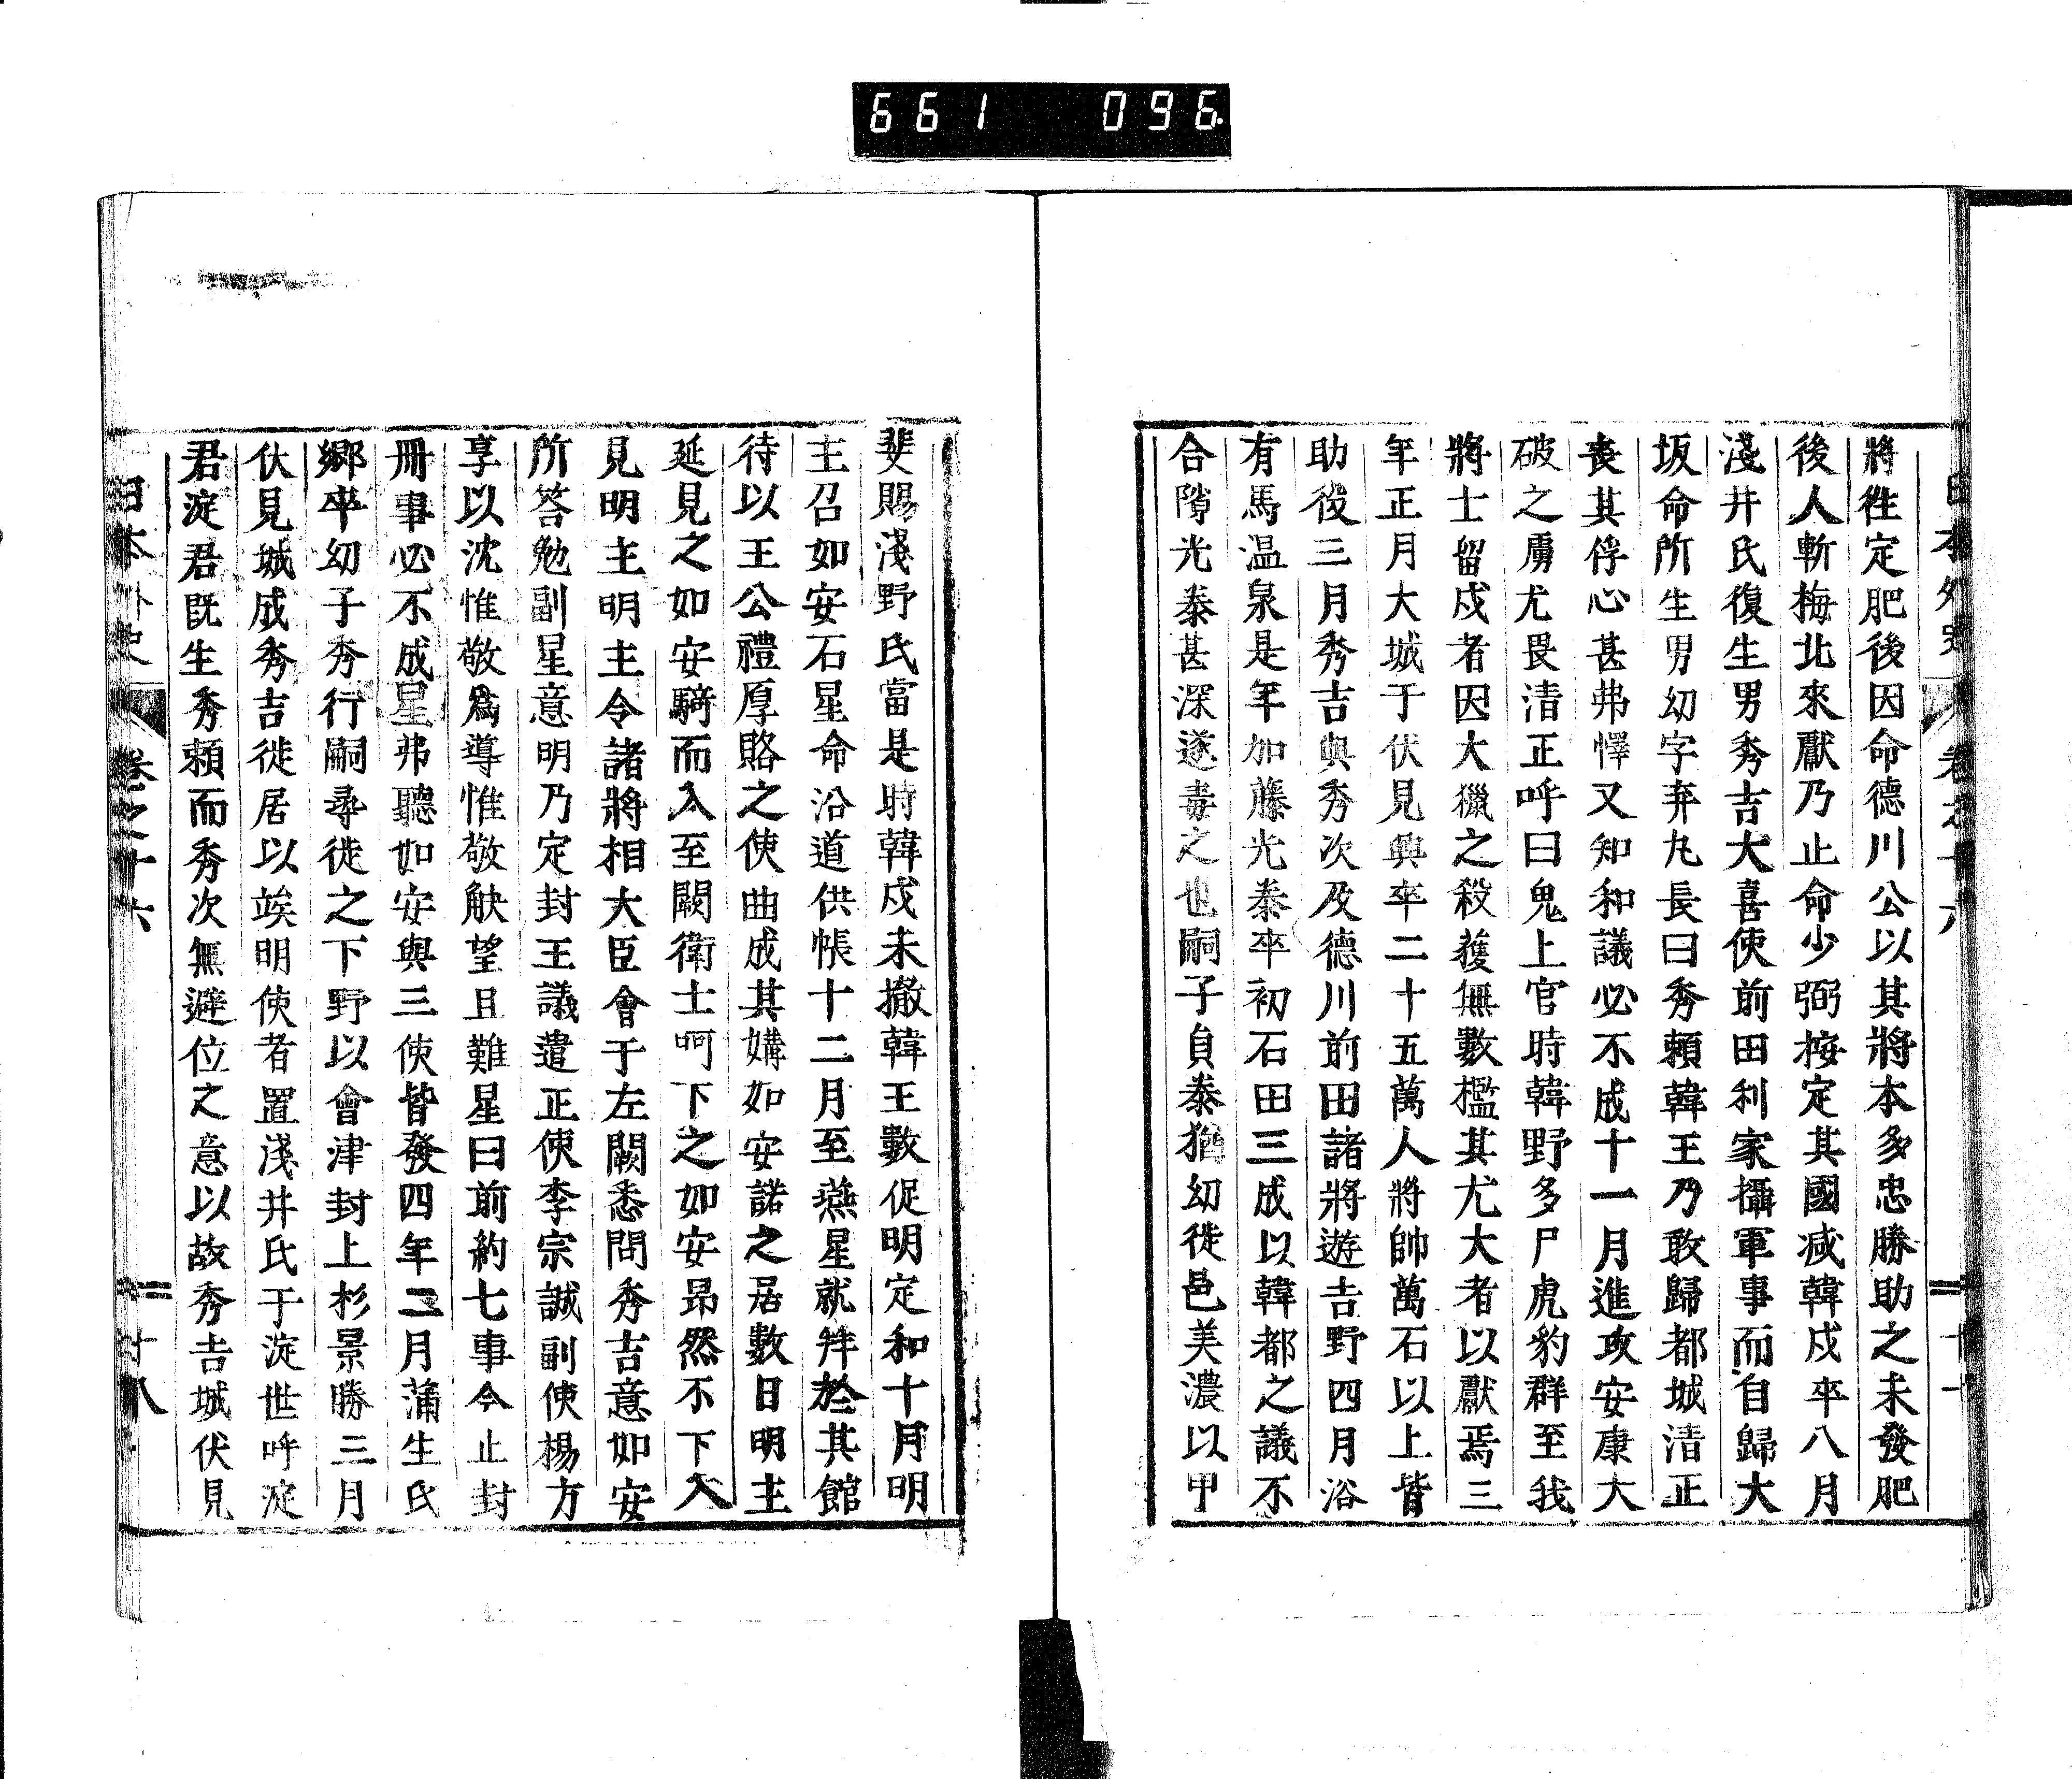 661 096
日本外史 卷之十六
將徃定肥後因命德川公以其將本多忠勝助之未發肥
後人斬梅北來獻乃止命少弼按定其國減韓戍卒八月
淺井氏復生男秀吉大喜使前田利家攝軍事而自歸大
坂命所生男幼字弃丸長曰秀賴韓王乃敢歸都城淸正
喪其俘心甚弗懌又知和議必不成十一月進攻安康大
破之虜尤畏淸正呼曰鬼上官時韓野多尸虎豹群至我
將士留戍者因大獵之殺獲無數檻其尤大者以獻焉三
年正月大城于伏見興卒二十五萬人將帥萬石以上皆
助役三月秀吉與秀次及德川前田諸將遊吉野四月浴
有馬温泉是年加藤光泰卒初石田三成以韓都之議不
合隙光泰甚深遂毒之也嗣子貞泰猶幼徙邑美濃以甲
斐賜淺野氏當是時韓戍未撤韓王數促明定和十月明
主召如安石星命沿道供帳十二月至燕星就拜於其館
待以王公禮厚賂之使曲成其媾如安諾之居數日明主
延見之如安騎而入至闕衛士呵下之如安昂然不下入
見明主明主令諸將相大臣會于左闕悉問秀吉意如安
所答勉副星意明乃定封王議遣正使李宗誠副使楊方
享以沈惟敬爲導惟敬觖望且難星曰前約七事今止封
冊事必不成星弗聽如安與三使皆發四年二月蒲生氏
鄉卒幼子秀行嗣尋徙之下野以會津封上杉景勝三月
伏見城成秀吉徙居以竢明使者置淺井氏于淀世呼淀
君淀君既生秀賴而秀次無避位之意以故秀吉城伏見
日本外史 卷之十六 十八